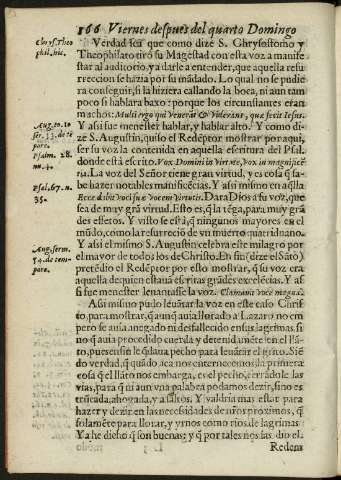 166 Viernes despues del quarto Domingo
Chrys. Theo
phil. hic.
Verdad sea que como dize S. Chrysostomo y
Theophilato tirò su Magestad con esta voz a manifes
tar al auditorio, ya darle a entender, que aquella resu
rreccion se hazia por su mãdado. Lo qual no se pudie
ra conseguir, si la hiziera callando la boca, ni aun tam
poco si hablara baxo: porque los circunstantes eran
muchos: Multi ergo qui venerãt & viderant, quæ fecit Iesus.
Aug. to. 10
ser. 33. de tẽ
pore.
Psalm. 28.
nu. 4.
Y assi fue menester hablar, y hablar alto. Y como di-
ze S. Augustin, quiso el Redẽptor mostrar por aqui,
ser su voz la contenida en aquella escritura del Psal.
donde està escrito. Vox Domini in virtute, vox in magnificẽ
ria. La voz del Señor tiene gran virtud, y es cosa q̃ sa-
Psal. 67. n.
35.
be hazer notables manificẽcias. Y assi mismo en aq̃lla
Ecce dabit voci suæ vocem virtutis. Dara Dios a su voz, que
sea de muy grã virtud. Esto es, q̃ la tẽga, para muy grã
des efetos. Y visto se està, q̃ ningunos mayores en el
mũdo, como la resurreciõ de vn muerto quatriduano.
Aug. serm.
74. de tem-
pore.
Y assi el mismo S. Augustin celebra este milagro por
el mayor de todos los de Christo. En fin (dize el Sãto)
pretẽdio el Redẽptor por esto mostrar, q̃ su voz era
aquella de quien estauã escritas grãdes excelẽcias. Y as
si fue menester leuantasse la voz. Clamauit voce magna.
Assi mismo pudo leuãtar la voz en este caso Chris
to, para mostrar, q̃ aunq̃ auia llorado a Lazaro no em
pero se auia anegado ni desfallecido en sus lagrimas, si
no q̃ auia procedido cuerda y detenidamẽte en el llã-
to, pues en fin le q̃daua pecho para leuãtar el grito. Siẽ
do verdad, q̃ quãdo acà nos enternecemos, la primera
cosa q̃ el llãto nos embarga, es el pecho, cerrãdo le las
vias, para q̃ ni aun vna palabra podamos dezir, sino es
trũcada, ahogada, y a saltos. Y valdria mas estar para
hazer y dezir en las necessidades de nr̃os proximos, q̃
solamẽte para llorar, y yrnos como rios de lagrimas
Ya he dicho q̃ son buenas; y q̃ por tales nos las dio el
Redem